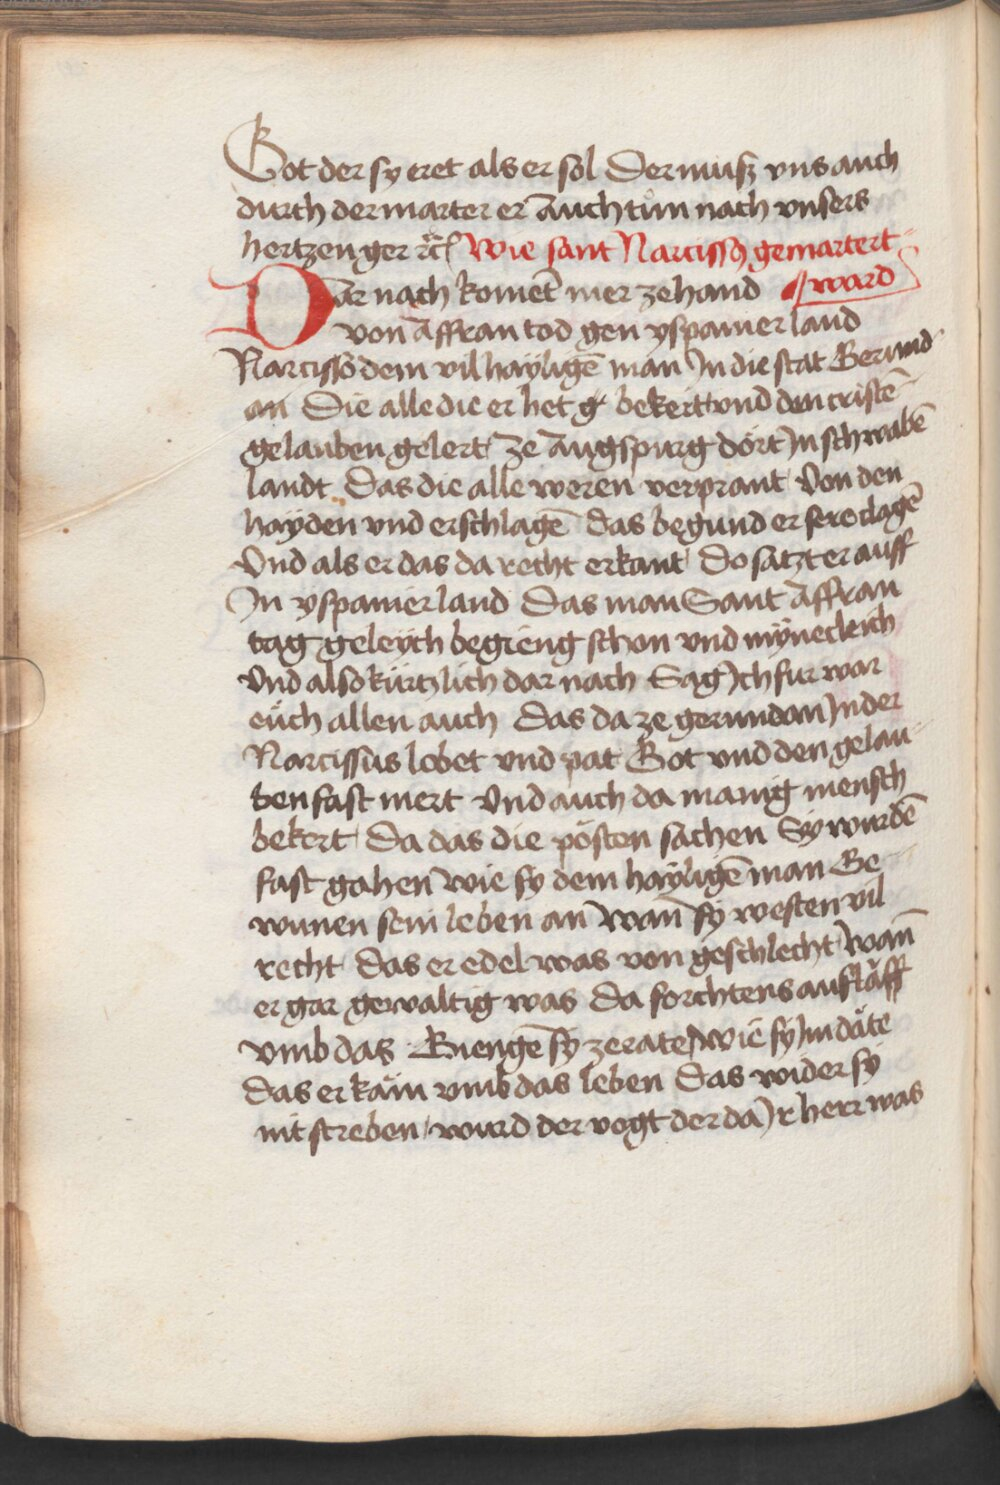 Got der sy eret als er sol Der muß vns auch
durch der marter er Auch tůn nach vnsers
hertzen ger Wie sant Narcissꝰ gemartert
Dar nach komēt mer ze hand ward
von Affran tod gen yspanier land
Narcisso dem vil haÿligē man In die stat Gerund
an Die alle die er het g bekert vnd den cristē
gelauben gelert Ze Augspurg dört In schwabē
landt Das die alle weren verprant Von den
haÿden vnd erschlagē das begund er sere clagē
Vnd als er das da recht erkant Do satzt er auff
In yspanier land Das man Sant Affran
tag geleÿch begieng schon vnd mÿnecleich
Vnd also kürtzlich dar nach Sag Ich fur war
eüch allen auch Das da ze gerundan In der
Narcissus lobet vnd pat Got vnd den gelau
ben fast mert Vnd auch da manig mensch
bekert Da das die pösten sachen Sy wurdē
fast gahen wie sy dem haÿligē man Ge
wunen sein leben an wan̄ sy westen vil
recht das er edel was von geschlecht wan̄
er gar gewaltig was da forchtens auflǎff
vmb das Giengē sy ze rate wie sy Im däte
das er käm vmb das leben Das wider sy
nit streben wurd der vogt der da Ir herr was